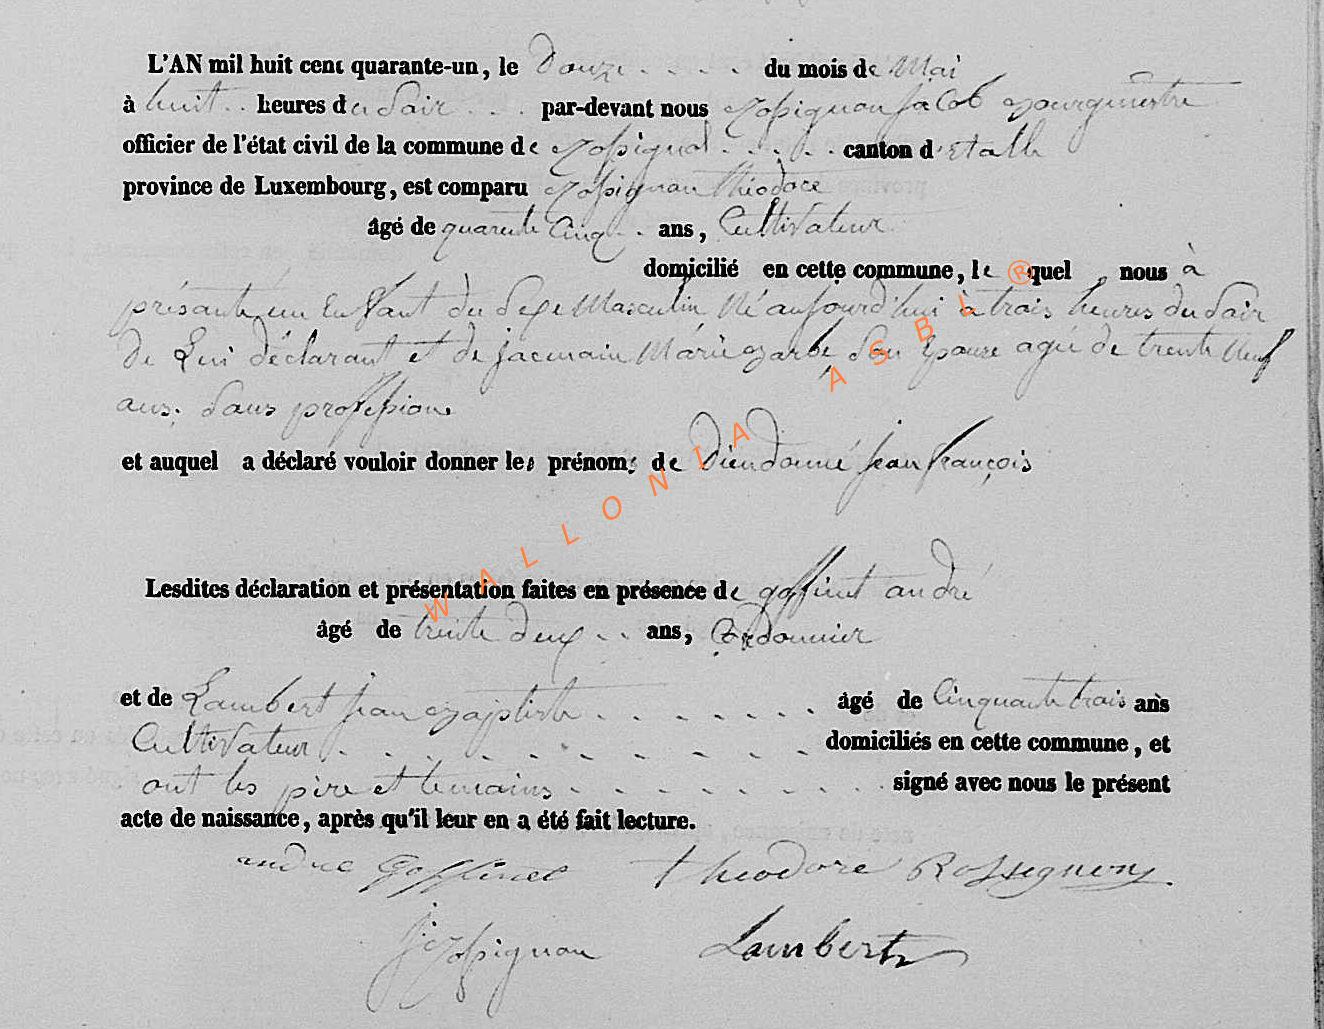 L'AN mil huit cent quarante-un, le Douze du mois de Mai
à huit heures du Soir par-devant nous Rossignon Jacob Bourguestre
officier de l'état civil de la commune de Rossignol canton d'Etalle
province de Luxembourg, est comparu Rossignon Théodore
âgé de quarente Cinq ans, Cultivateur
domicilié en cette commune, lequel nous à
présente un Enfant du Sexe Masculin Né aujourd'hui à trois heures du Soir
de Lui déclarant et de Jacmain Marie Barbe, Son Epouse agée de trente Neuf
ans. Sans profession
et auquel a déclaré vouloir donner les prénoms de Dieudonné Jean François
Lesdites déclaration et présentation faites en présence de goffinet andré
âgé de trente deux ans, Cordonnier
et de Lambert Jean Baptiste âgé de Cinquante trois ans
Cultivateur domiciliés en cette commune, et
ont les père et temoins signé avec nous le présent
acte de naissance, après qu'il leur en a été fait lecture.
andre Goffinet theodore Rossignon
J Rossignon Lambert
WALLONIA ASBL ®